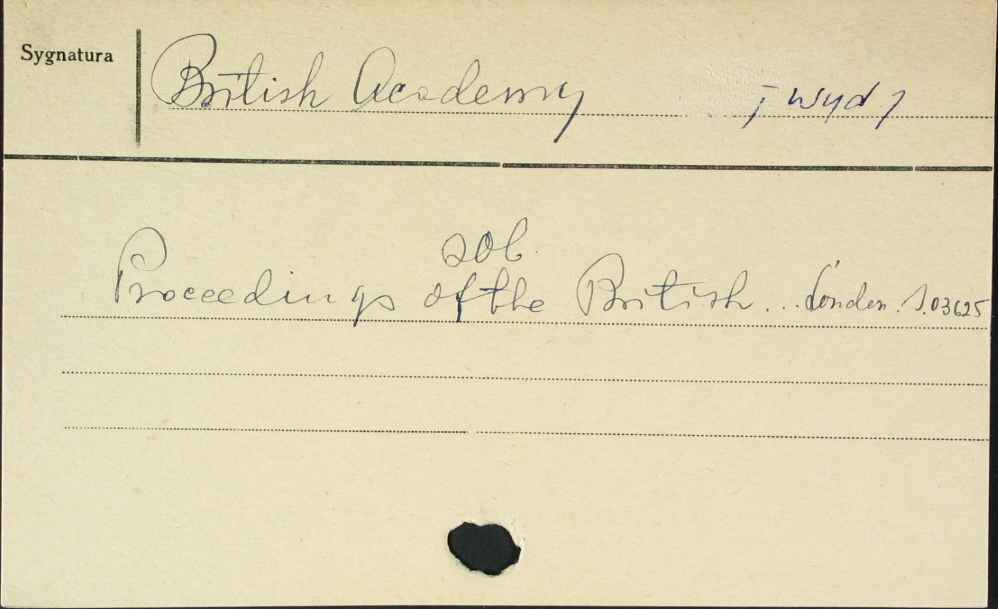 Sygnatura
British Academy [wyd]
zob.
Proceedings of the British .. London. S.03625